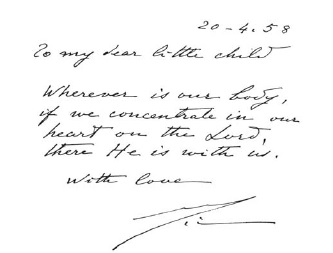 20-4.58
To my dear little child
Wherever is our body,
if we concentrate in our
heart on the Lord,
there He is with us.
With love